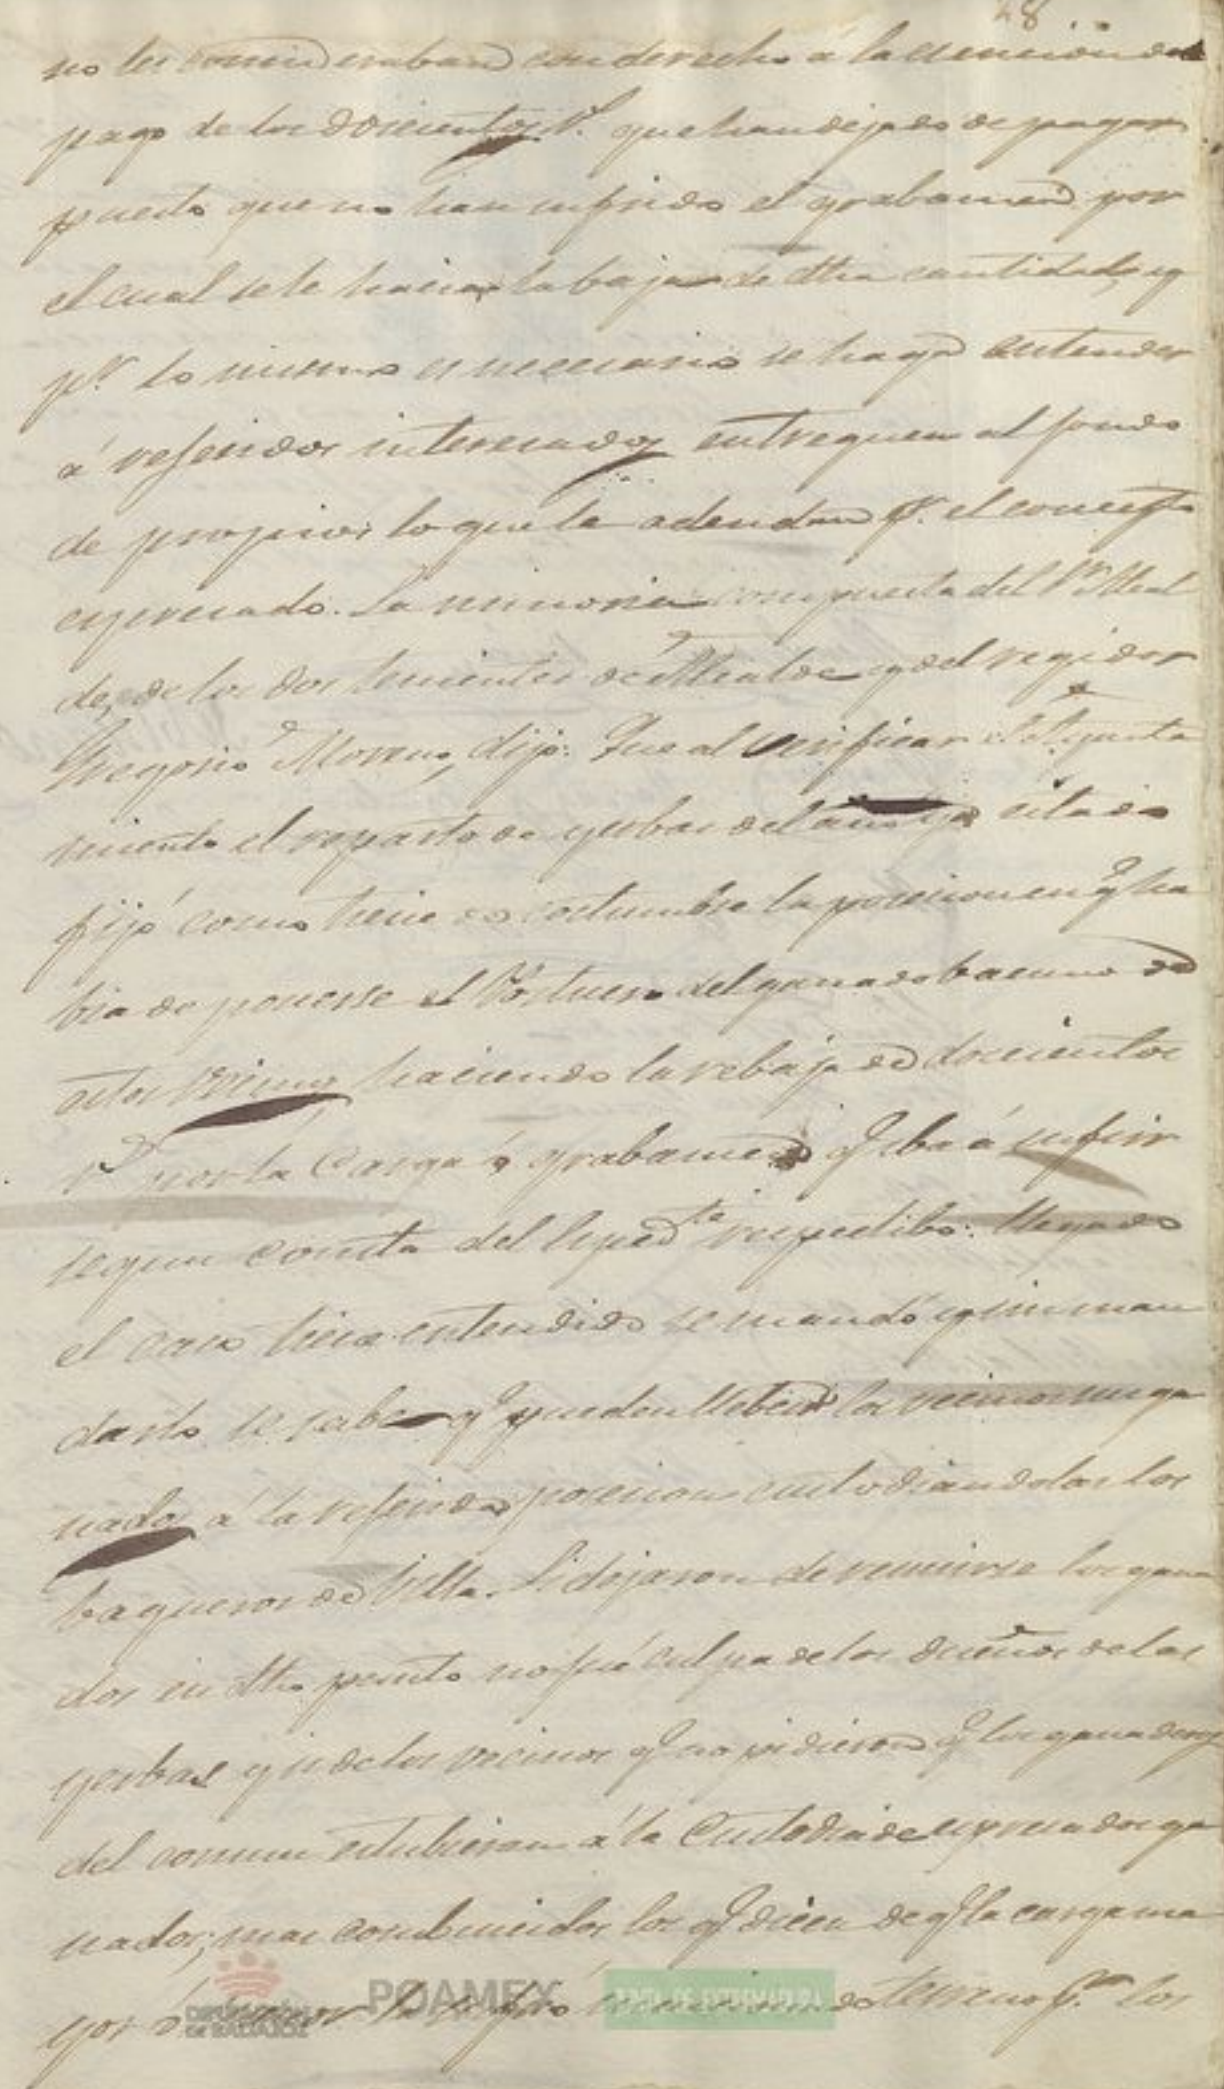 28
no les consideraban con derecho á la esencion del
pago de los doscientos r.s que han dejado de pagar
puesto que no han sufrido el grabamen por
el cual se le hacia la baja de dha cantidad, y
p.r lo mismo es necesario se haga entender
á referidos interesados entreguen al fondo
de propios lo que le adeudan p.r el concepto
espresado. La minoria compuesta del Sr. Alcal
de, de los dos tenientes de Alcalde y del regidor
Gregorio Moreno, dijo: Que al verificar el Ayunta
miento el reparto de yerbas del año ya citado
fijó como tiene de costumbre la posesion en q.e ha
bia de ponerse el del ganado bacuno de
estos vecinos haciendo la rebaja de doscientos
r.s por la carga ó grabamen q.e iba á sufrir
segun consta del Esped.te respectibo: llegado
el caso tiene entendido se mandó y sin man
darlo se sabe q.e pueden llebar los vecinos sus ga
nados á la referida posesion custodiandolos los
baqueros de Villa. Si dejaron de reunirse los gana
dos en dho punto no fué culpa de los dueños de las
yerbas y si de los vecinos q.e no pidieron q.e los ganaderos
del comun estubieran á la custodia de espresados ga
nados; mas combencidos los q.e dicen de q.e la carga ma
yor ó menor de terreno p.a los
DIPUTACIÓN
DE BADAJOZ
POAMEX
JUNTA DE EXTREMADURA